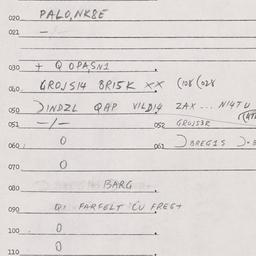 020 PALO,NK8E
021 -
030 + Q OPA,SN1
040 GROJSI4 8RI5K XX (108 (028
050 JINDZL QAP VILDI4 ZAX ... NI4TU
051 -/- 052 GROJS3R
060 0 061 JBREGIS
070 0
080 BARG
090 FARFELT CU FREG+
100 0
110 0